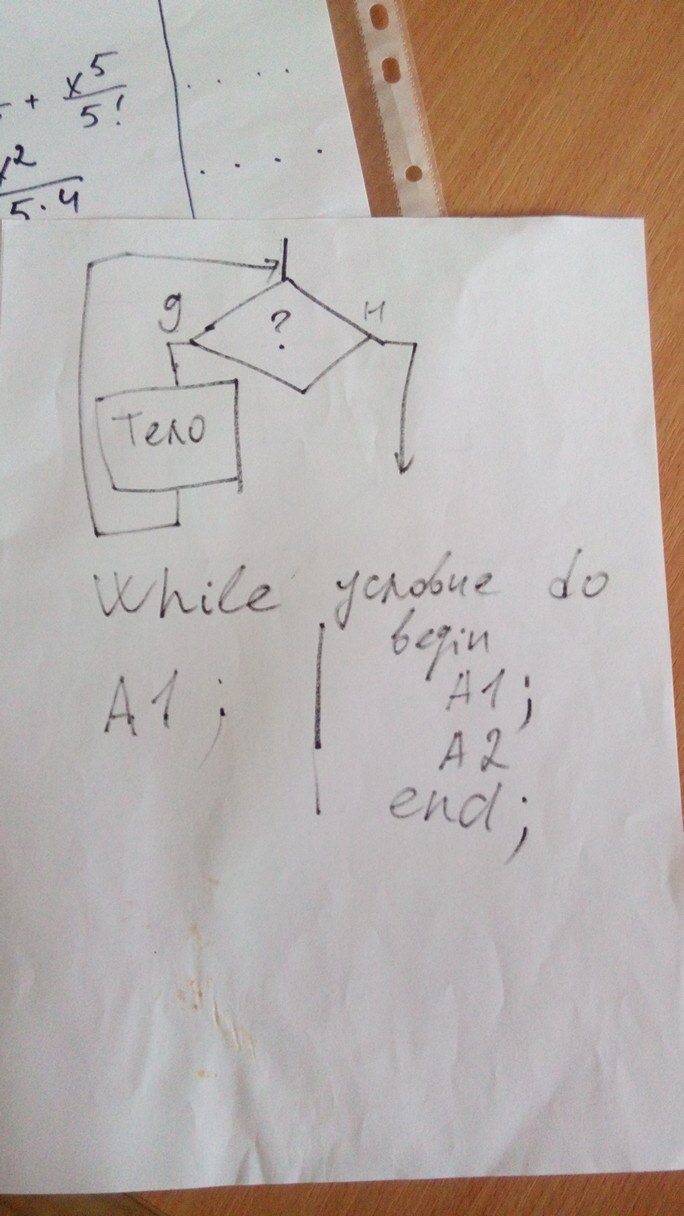 + x^5/5!
x^2/5·4
д ? н
Тело
While условие do
begin
A1; A1;
A2
end;